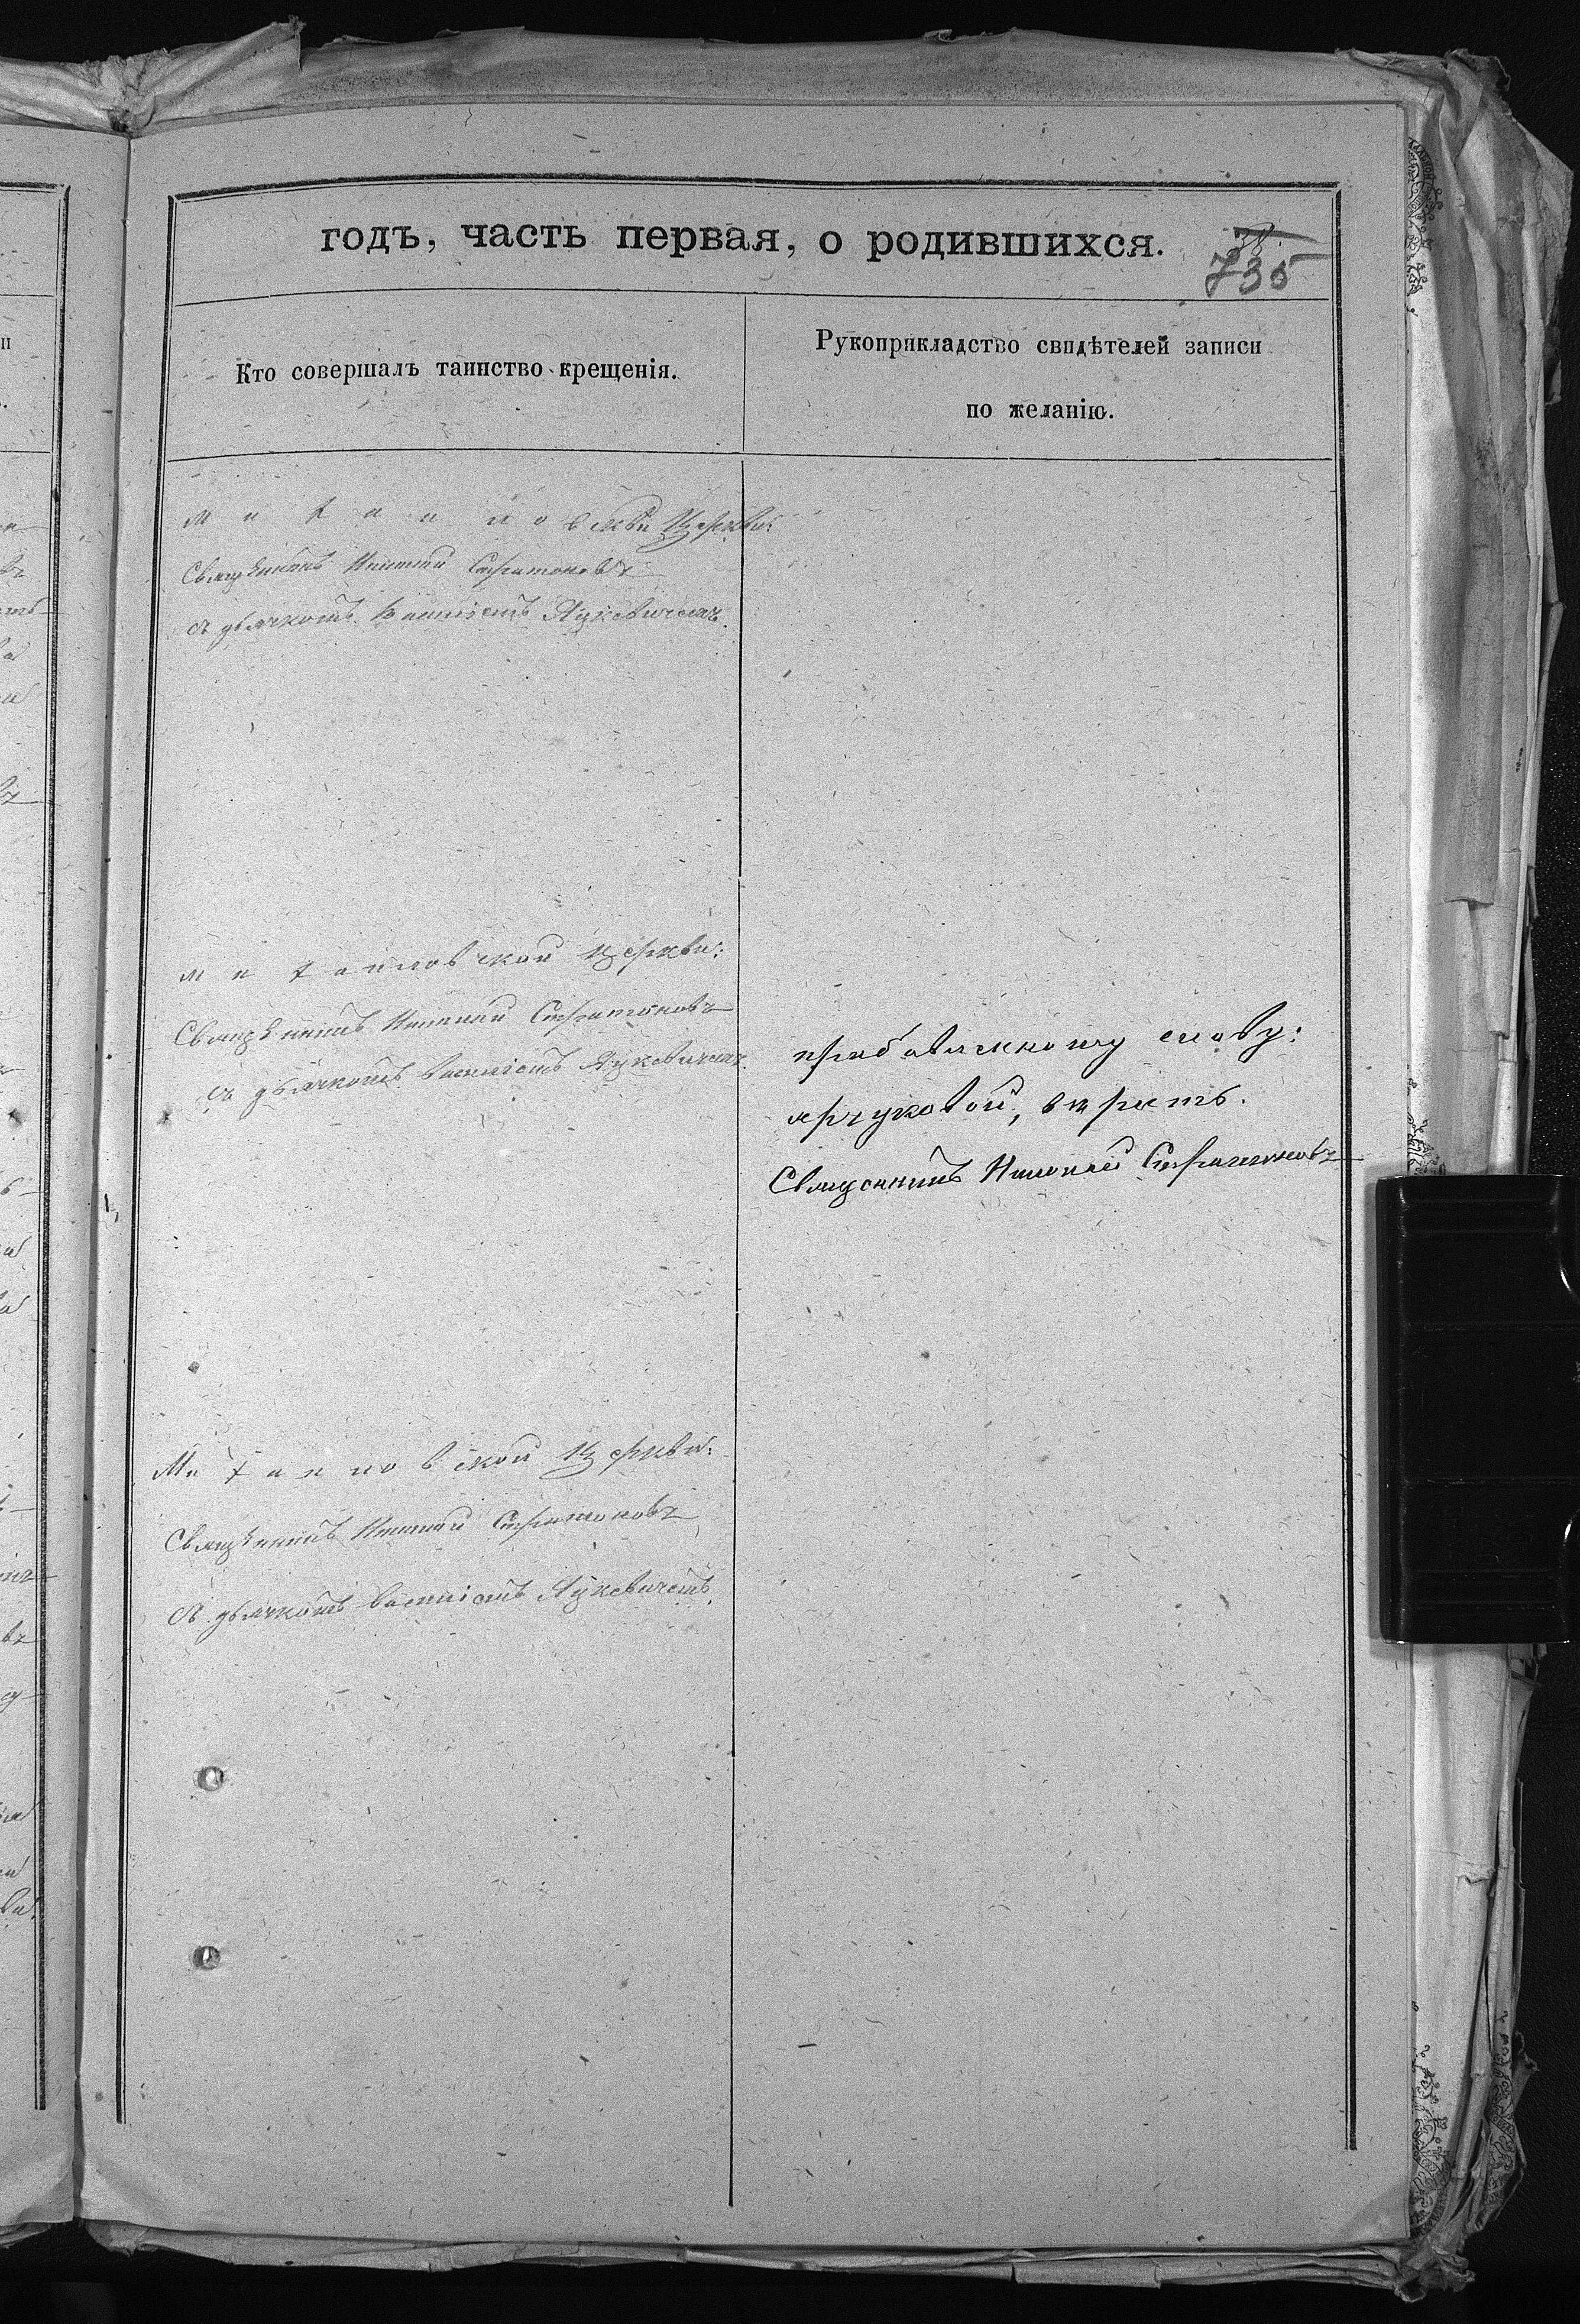 годъ, часть первая, о родившихся.
735
Кто совершалъ таинство крещенія.
Рукоприкладство свидѣтелей записи
по желанію.
Михайловской Церкви:
Священникъ Стратоновъ
съ дьячкомъ Василіемъ Лукевичемъ.
Михайловской Церкви:
Священникъ Стратоновъ
съ дьячкомъ Василіемъ Лукевичемъ.
прибавленному слову:
вѣрить.
Священникъ Стратоновъ
Михайловской Церкви:
Священникъ Стратоновъ
съ дьячкомъ Василіемъ Лукевичемъ.